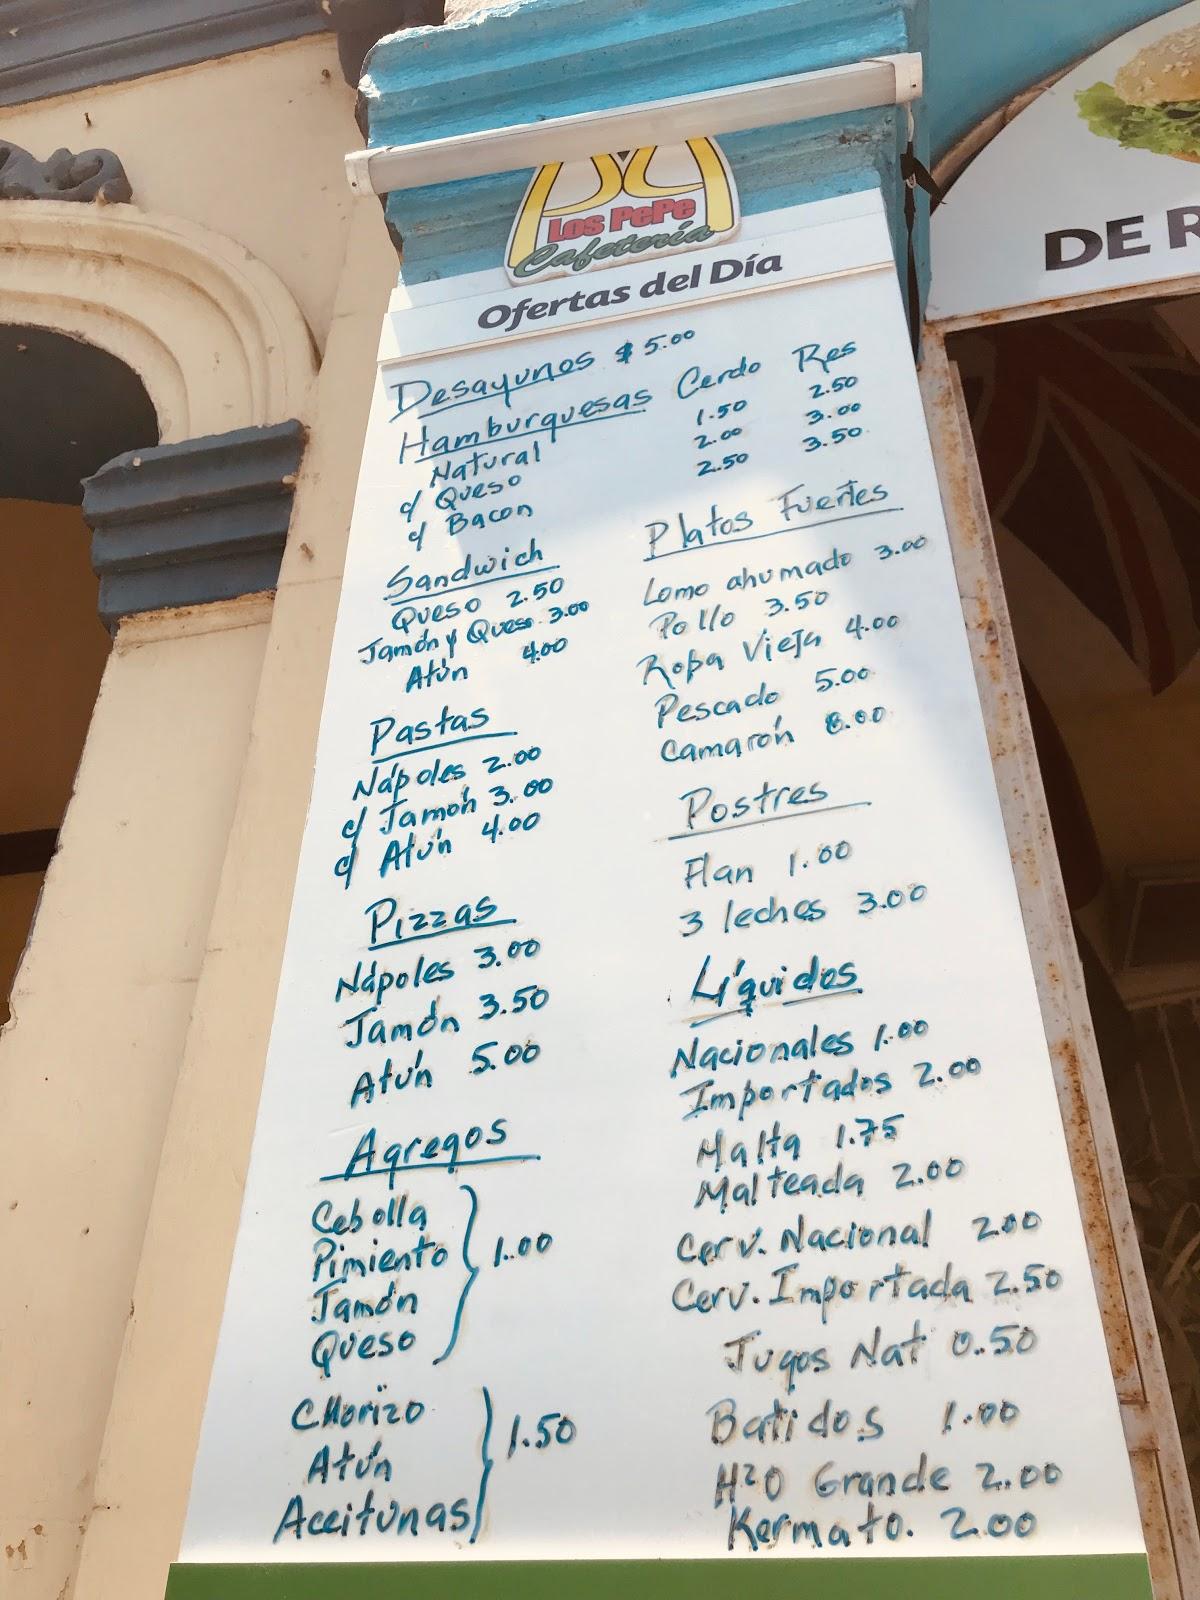 Los PePe
Cafetería
Ofertas del Día
Desayunos $ 5.00
Hamburguesas Cerdo Res
Natural 1.50 2.50
c/ Queso 2.00 3.00
c/ Bacon 2.50 3.50
Sandwich
Queso 2.50
Jamón y Queso 3.00
Atún 4.00
Pastas
Nápoles 2.00
c/ Jamón 3.00
c/ Atún 4.00
Pizzas
Nápoles 3.00
Jamón 3.50
Atún 5.00
Agregos
Cebolla
Pimiento
Jamón
Queso
1.00
Chorizo
Atún
Aceitunas
1.50
Platos Fuertes
Lomo ahumado 3.00
Pollo 3.50
Ropa Vieja 4.00
Pescado 5.00
Camarón
Postres
Flan 1.00
3 leches 3.00
Líquidos
Nacionales 1.00
Importados 2.00
Malta 1.75
Malteada 2.00
Cerv. Nacional 2.00
Cerv. Importada 2.50
Jugos Nat 0.50
Batidos 1.00
H2O Grande 2.00
Kermato. 2.00
DE R